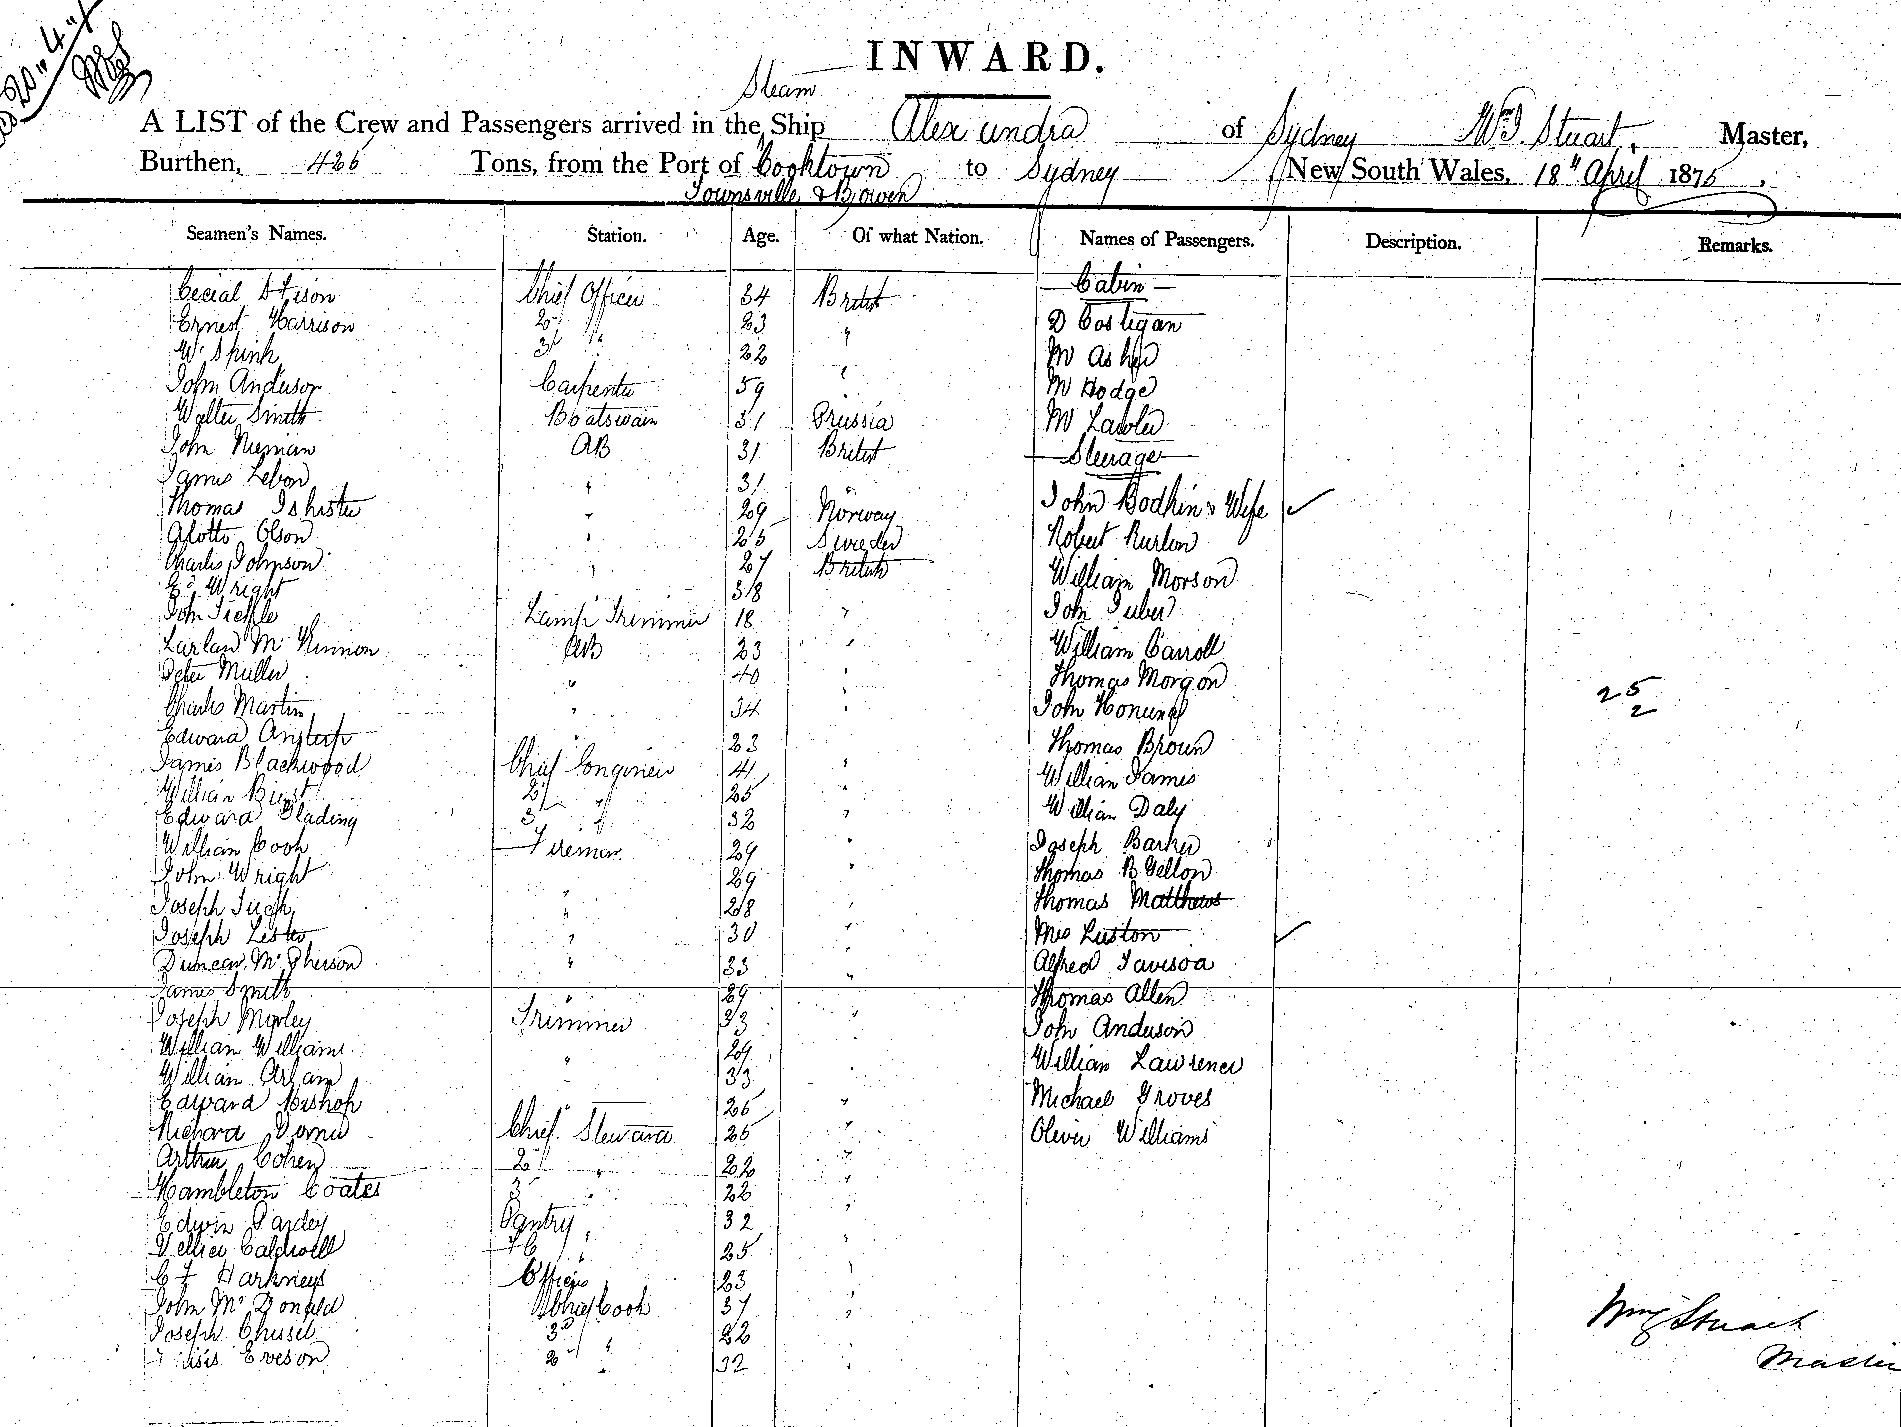 20" 4"
INWARD.
Steam
A LIST of the Crew and Passengers arrived in the Ship Alexandra of Sydney Wm J. Stuart, Master,
Burthen, 426 Tons, from the Port of Cooktown to Sydney New South Wales, 18th April 1875.
Townsville & Bowen
Seamen's Names. Station. Age. Of what Nation. Names of Passengers. Description. Remarks.
Cabin
Chief Officer 34 British
Ernest Harrison 2d " 23 " D Costigan
W. Spink 3d " 22 Mr Asher
John Anderson Carpenter 59 " Mr Hodge
Walter Smith Boatswain 31 Prussia Mr Lawler
John Nieman AB 31 British Steerage
James Lebon " 31 "
Thomas Isbister " 29 Norway John Bodkin & Wife
Olson " 25 Sweden Robert
Charles Johnson " 27 British William Morson
Ed. Wright 38
John Lamp Trimmer 18 " John
McKinnon AB 23 " William Carroll
Peter Muller " 40 " Thomas Morgan
Charles Martin " 34 " John 25
2
Edward " 23 Thomas Brown
James Blackwood Chief Engineer 41 " William James
William 2d " 25 " William Daly
Edward Glading 3d " 32 "
William Cook Fireman 29 " Joseph Barker
John Wright 29 " Thomas B
Joseph " 28 Thomas Matthews
Joseph Lester " 30 " Mrs Luston
Duncan McPherson " 33 " Alfred
James Smith " 29 Thomas Allen
Joseph Morley Trimmer 33 " John Anderson
William Williams " 29 William Lawrence
William 33 "
Edward Bishop " 26 " Michael Groves
Richard Chief Steward 25 " Oliver Williams
Arthur Cohen 2d " 22 "
Hambleton Coates 3 " 22 "
Edwin Pardey Pantry 32 "
Caldwell F C " 25 "
C F Harkness Officers 23 "
John McDonald Chief Cook 37 "
Joseph 3d " 22 Wm J Stuart
Eveson 2d " 32 " Master